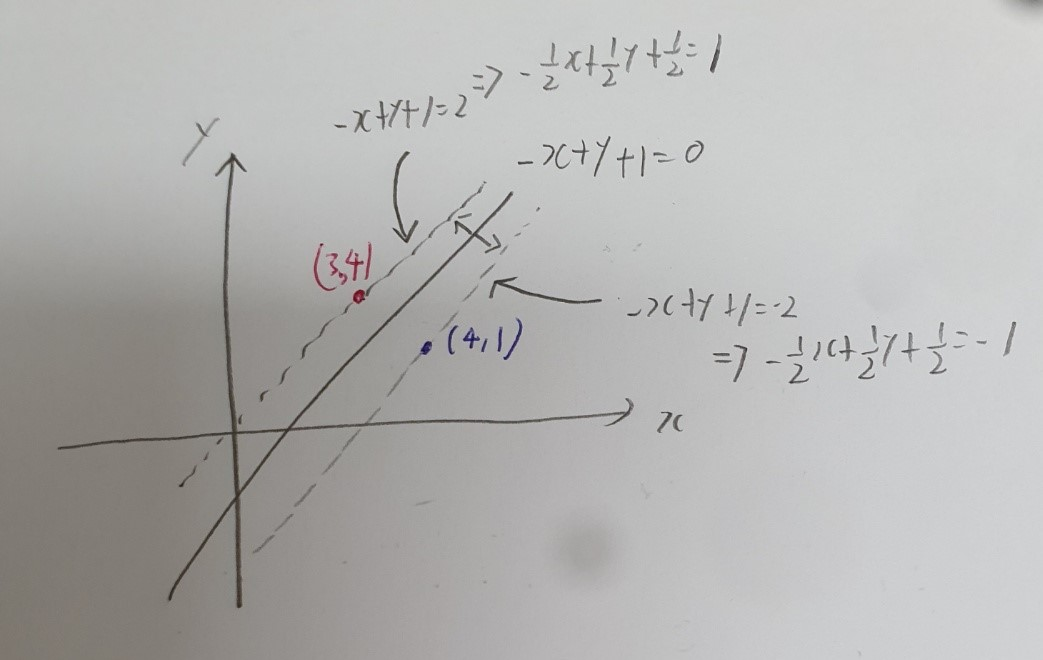 -x+y+1=2 ⇒ -1/2x+1/2y+1/2=1
-x+y+1=0
y
(3,4)
-x+y+1=-2
⇒ -1/2x+1/2y+1/2=-1
(4,1)
x